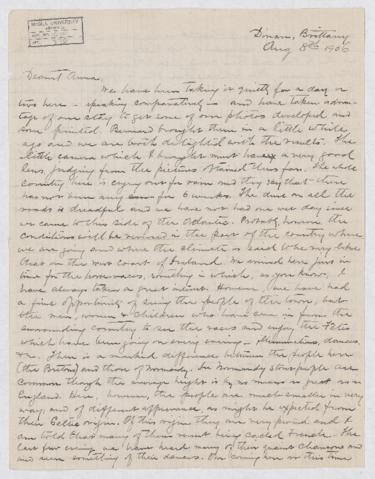 McGILL UNIVERSITY
Dinan, Brittany
Aug 8th 1906
Dearest Anna,
We have been taking it quietly for a day or
two here - speaking comparatively - and have taken advan-
tage of our stay to get some of our photos developed and
some printed. Bernard brought them in a little while
ago and we are both delighted with the results. The
little camera which I bought must have a very good
lens, judging from the pictures obtained thus far. The whole
country here is crying out for rain and they say that there
has not been any for 6 weeks. The dust on all the
roads is dreadful and we have not had one wet day since
we came to this side of the Atlantic. Probably however the
conditions will be reversed in the part of the country where
we are going and where the climate is said to be very like
that on the west coast of Ireland. We arrived here just in
time for the horse races, something in which, as you know, I
have always taken a great interest. However, we have had
a fine opportunity of seeing the people of the town, but
the men, women & children who have come in from the
surrounding country to see the races and enjoy the Fêtes
which have been going on every evening - illuminations, dances,
&c. There is a marked difference between the people here
(the Bretons) and those of Normandy. In Normandy stout people are
common though the average height is by no means as great as in
England. Here, however, the people are much smaller in every
way, and of different appearance, as might be expected from
their Celtic origin. Of this origin they are very proud and I
am told that many of them resent being called French. The
last few evenings we have heard many of their quaint chansons and
and seen something of their dances. Our coming here in this time